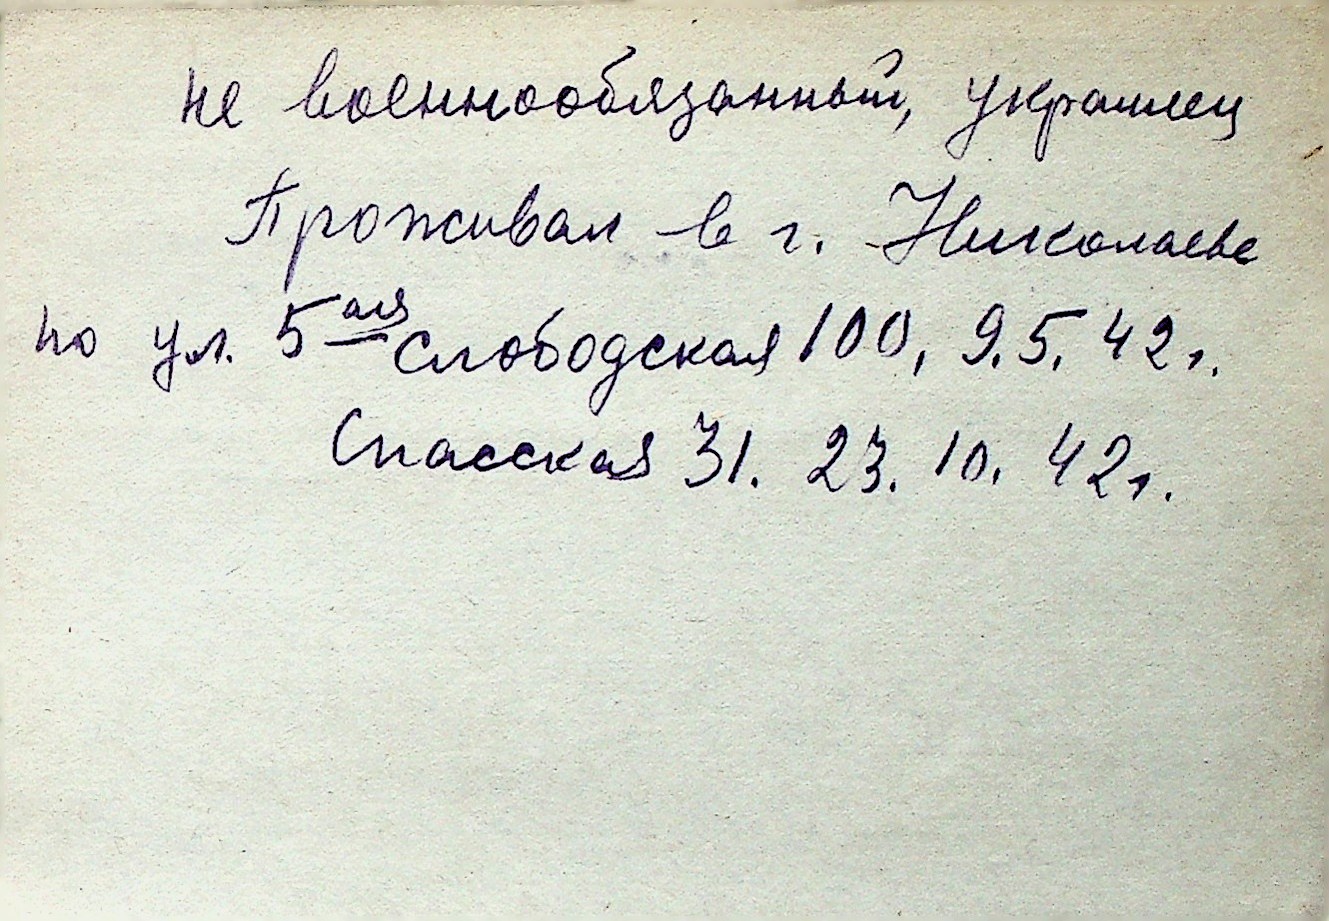 не военнообязанный, украинец
Проживал в г. Николаеве
по ул. 5ая Слободская 100, 9.5.42г.
Спасская 31. 23.10.42г.